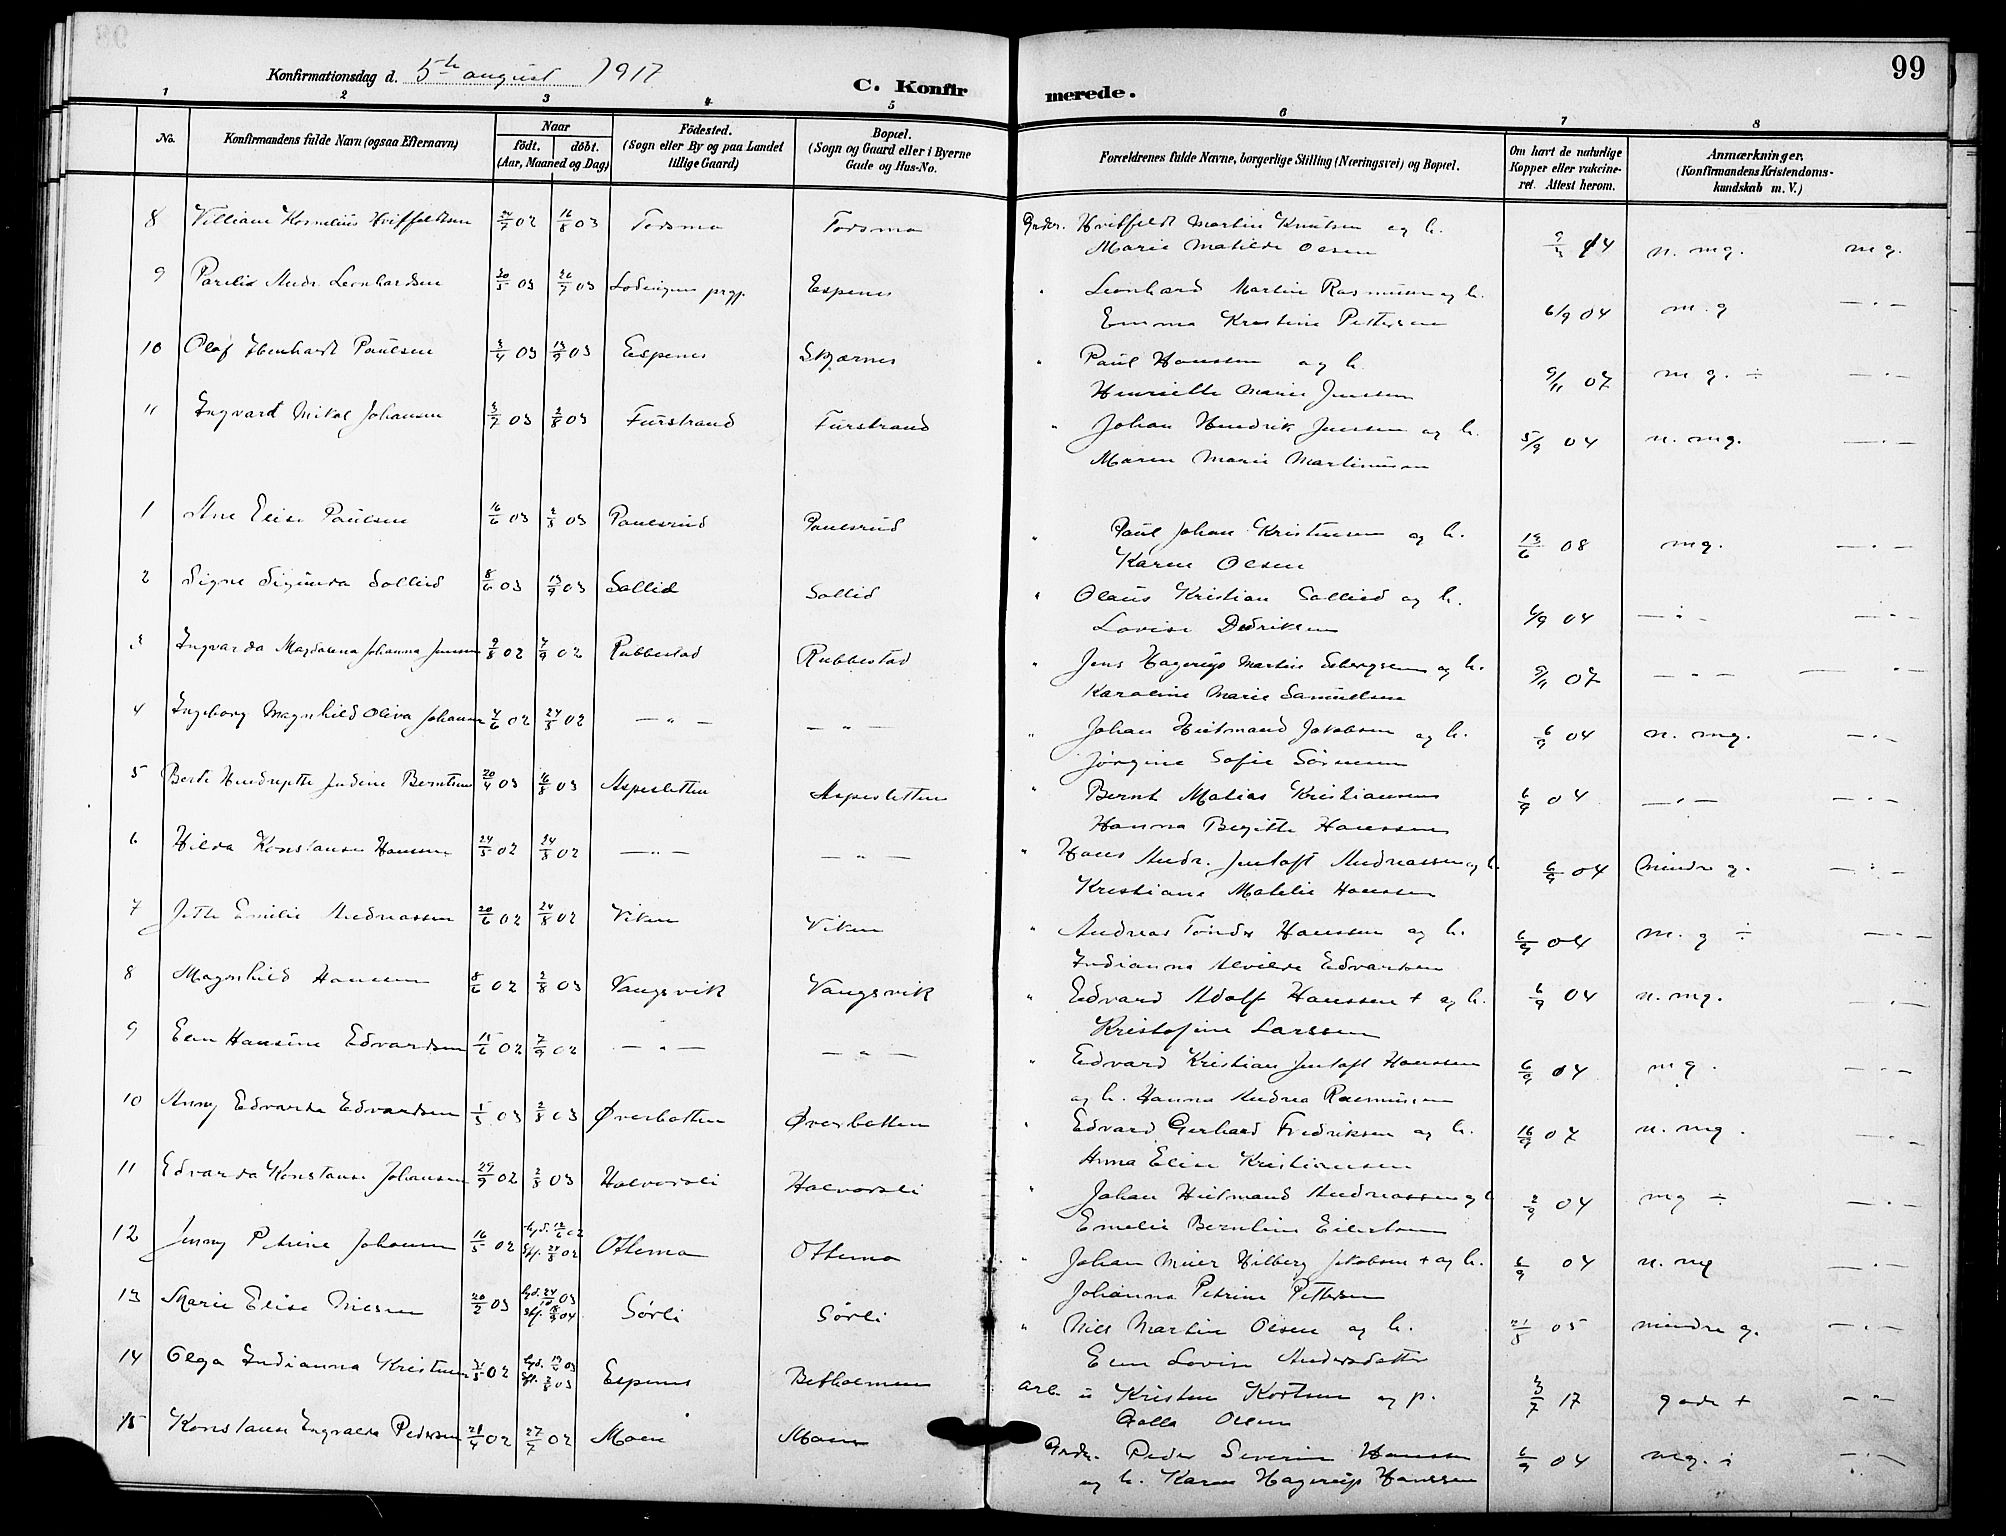 99
Konfirmationsdag d. 5th august 1917
C. Konfirmerede.
1 2 3 4 5 6 7 8
No.
Konfirmandens fulde Navn (ogsaa Efternavn)
Naar
født. døbt.
(Aar, Maaned og Dag)
Fødested.
(Sogn eller By og paa Landet
tillige Gaard)
Bopæl.
(Sogn og Gaard eller i Byerne
Gade og Hus-No.
Forældrenes fulde Navne, borgerlige Stilling (Næringsvei) og Bopæl.
Om havt de naturlige
Kopper eller vakcine-
ret. Attest herom.
Anmærkninger.
(Konfirmandens Kristendoms-
kundskab m. V.)
8 Villiam Kornelius Hvitfeldtsen 24/7 02 16/8 03 Torsmo Torsmo Hvitfeldt Martin Knutsen og h. 04 n. mg. mg.
Marie Matilde Olsen
9 Andr. Leonhardsen 20/5 03 26/7 03 Lødingen prgj. Espenes " Leonhard Martin Rasmussen og h. 6/9 04 m. g — " —
Emma Kristine Pettersen
10 Olaf Ebenhardt Paulsen 3/4 03 13/9 03 Espenes Skjærnes " Paul Hanssen og h. 9/11 07 m g. ÷ — " —
Henriette Marie Jenssen
11 Ingvard Mikal Johansen 3/7 03 2/8 03 Furstrand Furstrand " Johan Hendrik Jenssen og h. 5/9 04 n. mg. — " —
Maren Marie Martinussen
1 Ane Elise Paulsen 16/6 03 2/8 03 Paulsrud Paulsrud " Paul Johan Kristensen og h. 13/6 08 mg. — " —
Karen Olsen
2 Signe Sigunda Sollied 8/6 03 13/9 03 Sollid Sollid " Olaus Kristian Sollied og h. 6/9 04 — " — — " —
Lovise Dedriksen
3 Ingvarda Magdalena Johanna Jensen 9/8 02 7/9 02 Rubbestad Rubbestad " Jens Hagerup Martin Esbergsen og h. 9/11 07 — " — — " —
Karoline Marie Samuelsen
4 Ingeborg Magnhild Oliva Johansen 4/6 02 24/8 02 — " — — " — " Johan Hielmand Jakobsen og h. 6/9 04 n. mg. — " —
Jørgine Sofie Sørensen
5 Berte Hendrikette Jensine Berntsen 20/4 03 16/8 03 Aspesletten Aspesletten " Bernt Matias Kristiansen 6/9 04 — " — — " —
Hanna Birgitte Hanssen
6 Hilda Konstanse Hanssen 24/5 02 24/8 02 — " — — " — " Hans Andr. Jentoft Andreassen og h. 6/9 04 mindre g. — " —
Kristiane Matilie Hanssen
7 Jette Emilie Andreassen 20/6 02 24/8 02 Viken Viken " Andreas Tønder Hanssen og h. 6/9 04 m. g ÷ — " —
Indianna Alvilda Edvardsen
8 Magnhild Hanssen 8/6 02 2/8 03 Vangsvik Vangsvik " Edvard Adolf Hanssen + og h. 6/9 04 n. mg. — " —
Kristofine Larssen
9 Elen Hansine Edvardsen 11/6 02 7/9 02 — " — — " — " Edvard Kristian Jentoft Hanssen 6/9 04 mg. — " —
og h. Hanna Andrea Rasmussen
10 Anny Edvarda Edvardsen 1/5 03 2/8 03 Øverbotten Øverbotten " Edvard Gerhard Fredriksen og h. 16/9 07 n. mg. — " —
Anna Elise Kristiansen
11 Edvarda Konstanse Johansen 29/9 02 2/8 03 Halvorsli Halvorsli " Johan Hielmand Andreassen og h 2/9 04 mg ÷ — " —
Emelie Berntine Eilertsen
12 Jenny Petrine Johansen 16/5 02 hjd. 12/6 02 Stf. 24/8 02 Ottemo Ottemo " Johan Meier Hilberg Jakobsen + og h. 6/9 04 n. mg — " —
Johanna Petrine Pettersen
13 Marie Elise Nilsen 20/2 03 hjd. 24/10 03 Stf. 04 Sørli Sørli " Nils Martin Olsen og h. 21/5 05 mindre g. — " —
Elen Lovise Andersdatter
14 Olga Indianna Kristensen 31/5 02 hjd. 03 Stf. 2/8 03 Espenes Betholmen arb. u Kristen Kortsen og p. 3/7 17 gode + — " —
Galla Olsen
15 Konstanse Engvalda Pedersen 28/4 02 27/7 02 Moen Moen Peder Severin Hanssen 6/9 04 mg. ÷ — " —
og h. Karen Hagerup Hanssen